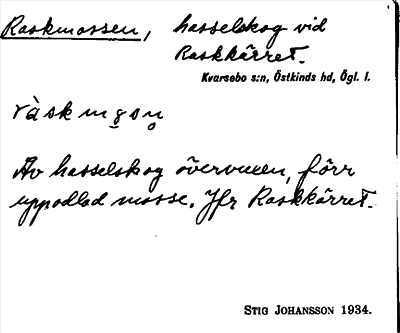 Raskmossen, hasselskog vid
Raskkärret.
Kvarsebo s:n, Östkinds hd, Ögl. l.
ràskmo̤so̤n̥
Av hasselskog övervuxen, förr
uppodlad mosse. Jfr Raskkärret.
STIG JOHANSSON 1934.